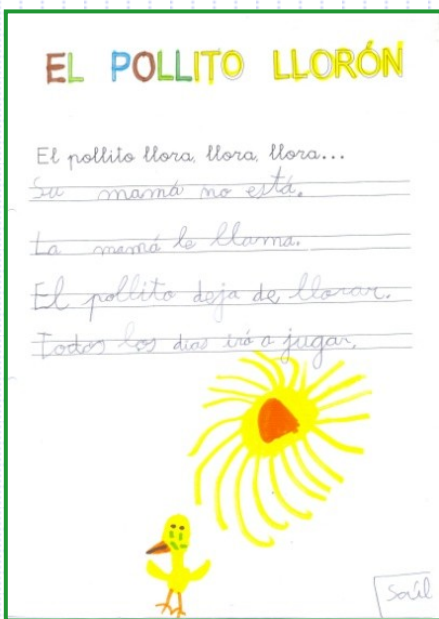 EL POLLITO LLORÓN
El pollito llora, llora, llora...
Su mamá no está.
La mamá le llama.
El pollito deja de llorar.
Todos los días irá a jugar.
Saúl